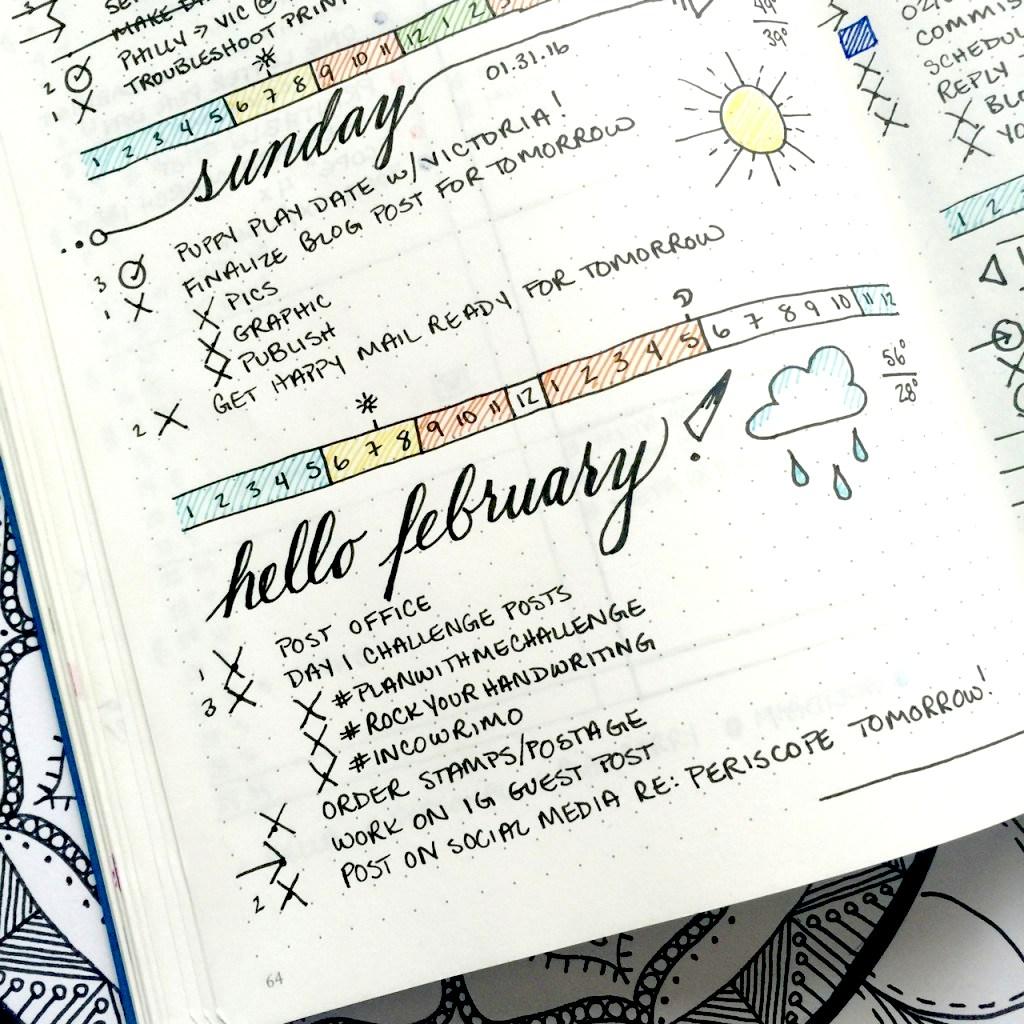 MAKE
PHILLY → VIC @
TROUBLESHOOT PRINT
2
1
1 2 3 4 5 6 7 8 9 10 11 12 1 2
49°
39°
sunday
01.31.16
3 PUPPY PLAY DATE W/VICTORIA!
1 FINALIZE BLOG POST FOR TOMORROW
PICS
GRAPHIC
PUBLISH
2 GET HAPPY MAIL READY FOR TOMORROW
1 2 3 4 5 6 7 8 9 10 11 12 1 2 3 4 5 6 7 8 9 10 11 12
hello february!
56°
28°
1 POST OFFICE
3 DAY 1 CHALLENGE POSTS
#PLANWITHMECHALLENGE
#ROCKYOURHANDWRITING
#INCOWRIMO
ORDER STAMPS/POSTAGE
WORK ON IG GUEST POST
2 POST ON SOCIAL MEDIA RE: PERISCOPE TOMORROW!
64
COMMIS
SCHEDUL
REPLY
BLO
YO
1 2